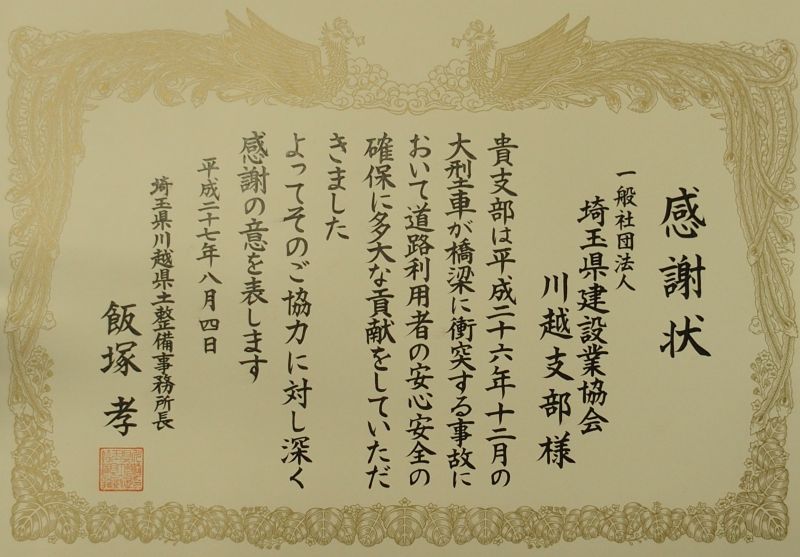 感謝状
一般社団法人
埼玉県建設業協会
川越支部様
貴支部は平成二十六年十二月の
大型車が橋梁に衝突する事故に
おいて道路利用者の安心安全の
確保に多大な貢献をしていただ
きました
よってそのご協力に対し深く
感謝の意を表します
平成二十七年八月四日
埼玉県川越県土整備事務所長
飯塚孝